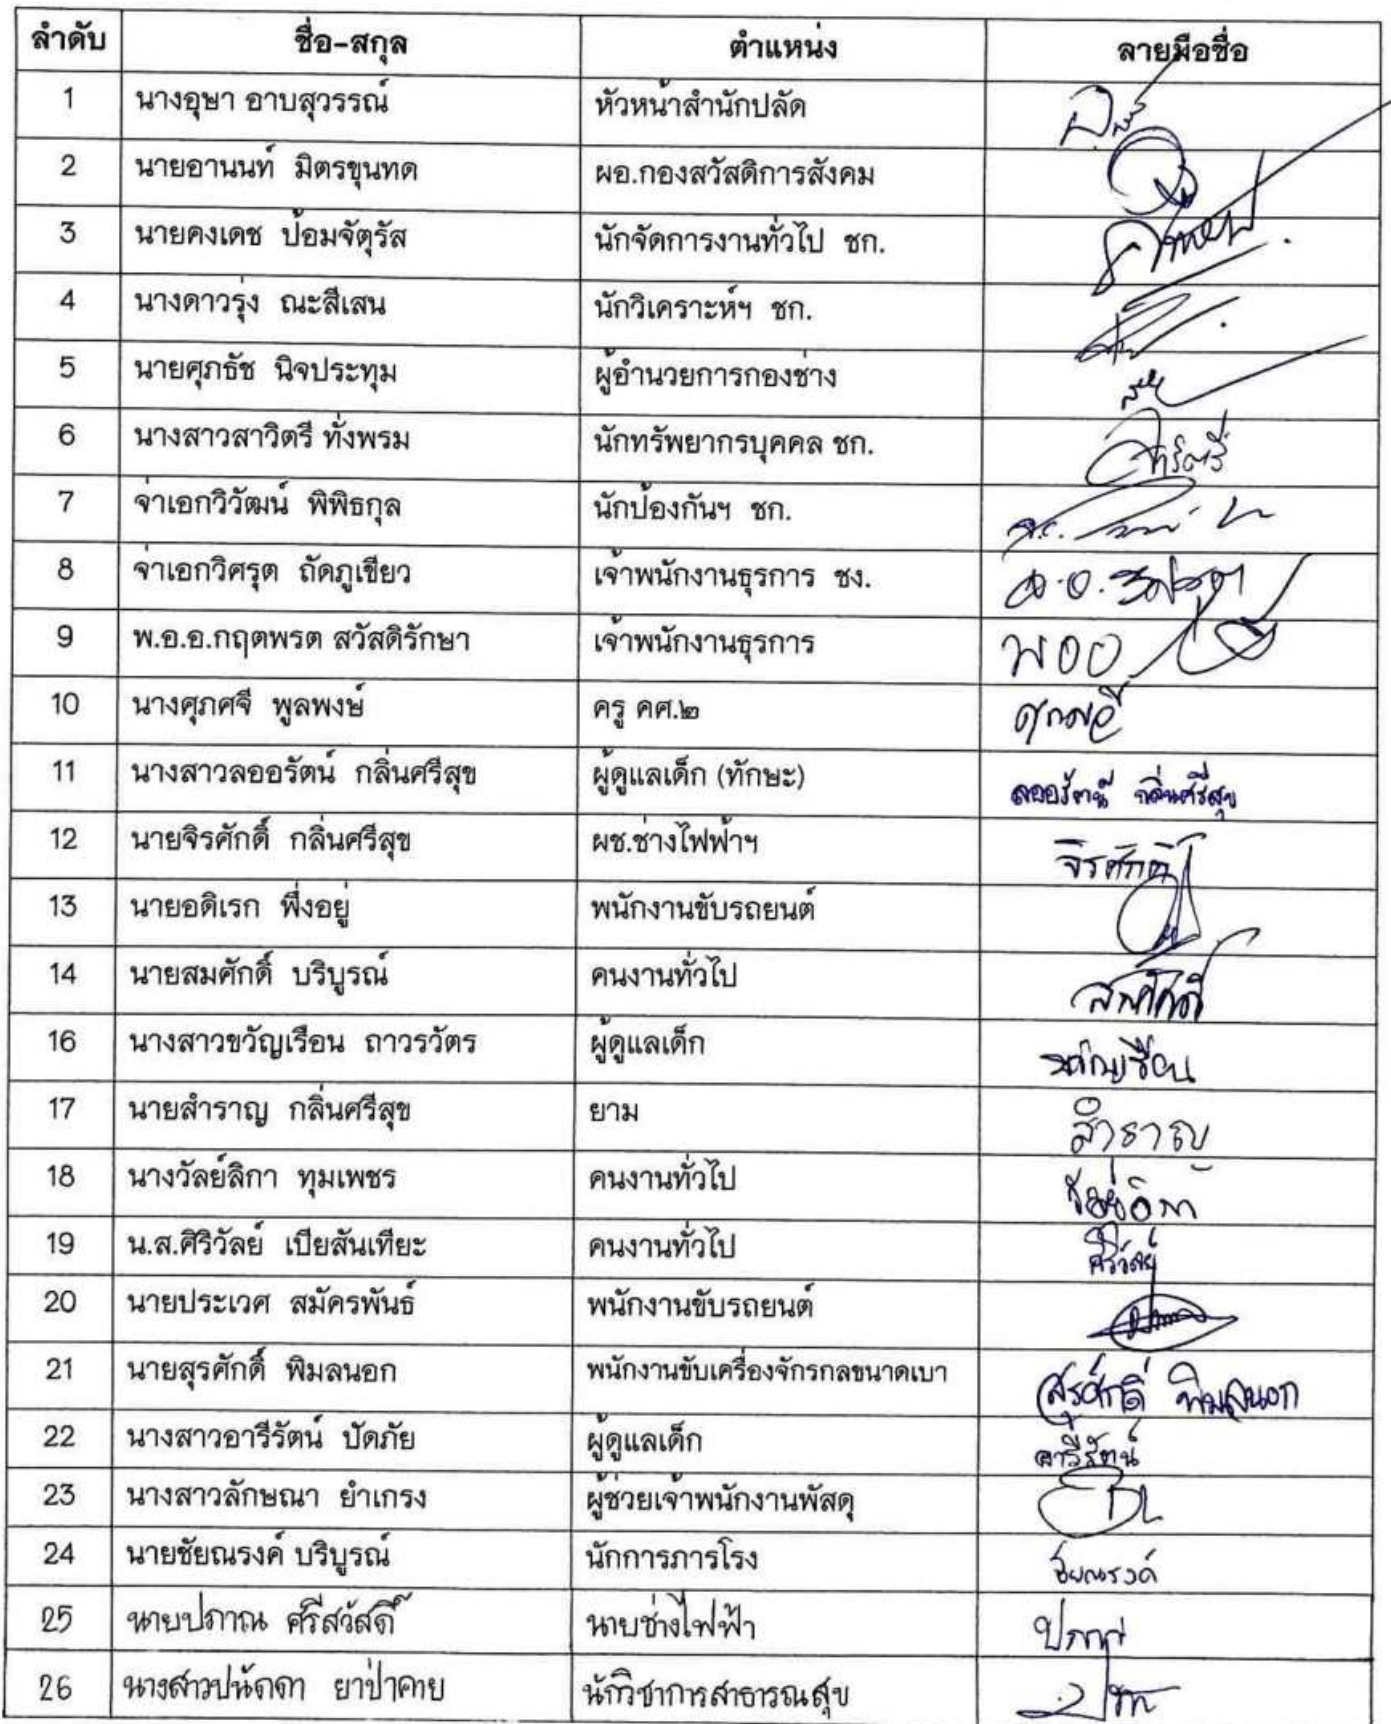 ลำดับ ชื่อ-สกุล ตำแหน่ง ลายมือชื่อ
1 นางอุษา อาบสุวรรณ์ หัวหน้าสำนักปลัด
2 นายอานนท์ มิตรขุนทด ผอ.กองสวัสดิการสังคม
3 นายคงเดช ป้อมจัตุรัส นักจัดการงานทั่วไป ชก.
4 นางดาวรุ่ง ณะสีเสน นักวิเคราะห์ฯ ชก.
5 นายศุภธัช นิจประทุม ผู้อำนวยการกองช่าง
6 นางสาวสาวิตรี ทั่งพรม นักทรัพยากรบุคคล ชก. สาวิตรี
7 จ่าเอกวิวัฒน์ พิพิธกุล นักป้องกันฯ ชก.
8 จ่าเอกวิศรุต ถัดภูเขียว เจ้าพนักงานธุรการ ชง. จ.อ.วิศรุต
9 พ.อ.อ.กฤตพรต สวัสดิรักษา เจ้าพนักงานธุรการ พออ
10 นางศุภศจี พูลพงษ์ ครู คศ.๒ ศุภศจี
11 นางสาวลออรัตน์ กลิ่นศรีสุข ผู้ดูแลเด็ก (ทักษะ) ลออรัตน์ กลิ่นศรีสุข
12 นายจิรศักดิ์ กลิ่นศรีสุข ผช.ช่างไฟฟ้าฯ จิรศักดิ์
13 นายอดิเรก พึ่งอยู่ พนักงานขับรถยนต์
14 นายสมศักดิ์ บริบูรณ์ คนงานทั่วไป สมศักดิ์
16 นางสาวขวัญเรือน ถาวรวัตร ผู้ดูแลเด็ก ขวัญเรือน
17 นายสำราญ กลิ่นศรีสุข ยาม สำราญ
18 นางวัลย์ลิกา ทุมเพชร คนงานทั่วไป วัลย์ลิกา
19 น.ส.ศิริวัลย์ เบียสันเทียะ คนงานทั่วไป ศิริวัลย์
20 นายประเวศ สมัครพันธ์ พนักงานขับรถยนต์
21 นายสุรศักดิ์ พิมลนอก พนักงานขับเครื่องจักรกลขนาดเบา สุรศักดิ์ พิมลนอก
22 นางสาวอารีรัตน์ ปัดภัย ผู้ดูแลเด็ก อารีรัตน์
23 นางสาวลักษณา ยำเกรง ผู้ช่วยเจ้าพนักงานพัสดุ
24 นายชัยณรงค์ บริบูรณ์ นักการภารโรง ชัยณรงค์
25 นายปภาณ ศรีสวัสดิ์ นายช่างไฟฟ้า ปภาณ
26 นางสาวปนัดดา ยาป่าคาย นักวิชาการสาธารณสุข